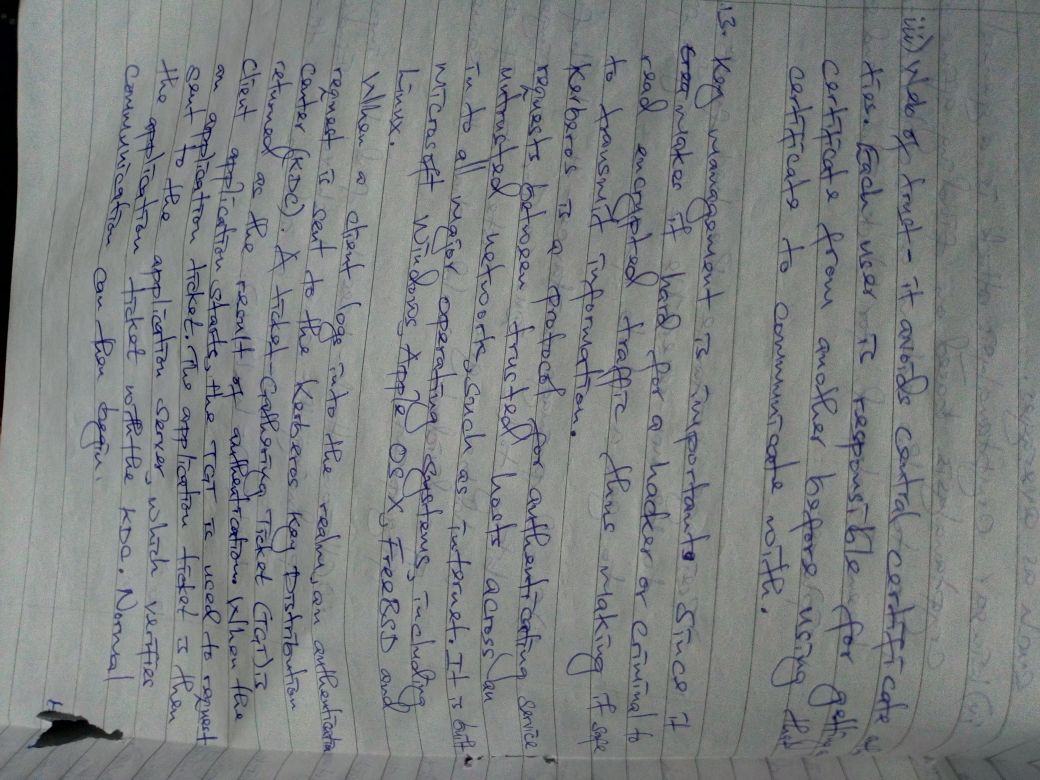 iii) Web of trust - it avoids central certificate
ties. Each user is responsible for getting
certificate from another before using that
certificate to communicate with.
13. Key management is important since it
makes it hard for a hacker or criminal to
read encrypted traffic thus making it safe
to transmit information.
Kerberos is a protocol for authenticating service
requests between trusted hosts across an
untrusted network, such as internet. It is built
in to all major operating systems, including
Microsoft Windows, Apple OS X, FreeBSD and
Linux.
When a client logs into the realm, an authentication
request is sent to the Kerberos Key Distribution
Center (KDC). A ticket-Gathering Ticket (TGT) is
returned as the result of authentication. When the
client application starts, the TGT is used to request
an application ticket. The application ticket is then
sent to the application server, which verifies
the application ticket with the KDC. Normal
Communication can then begin.